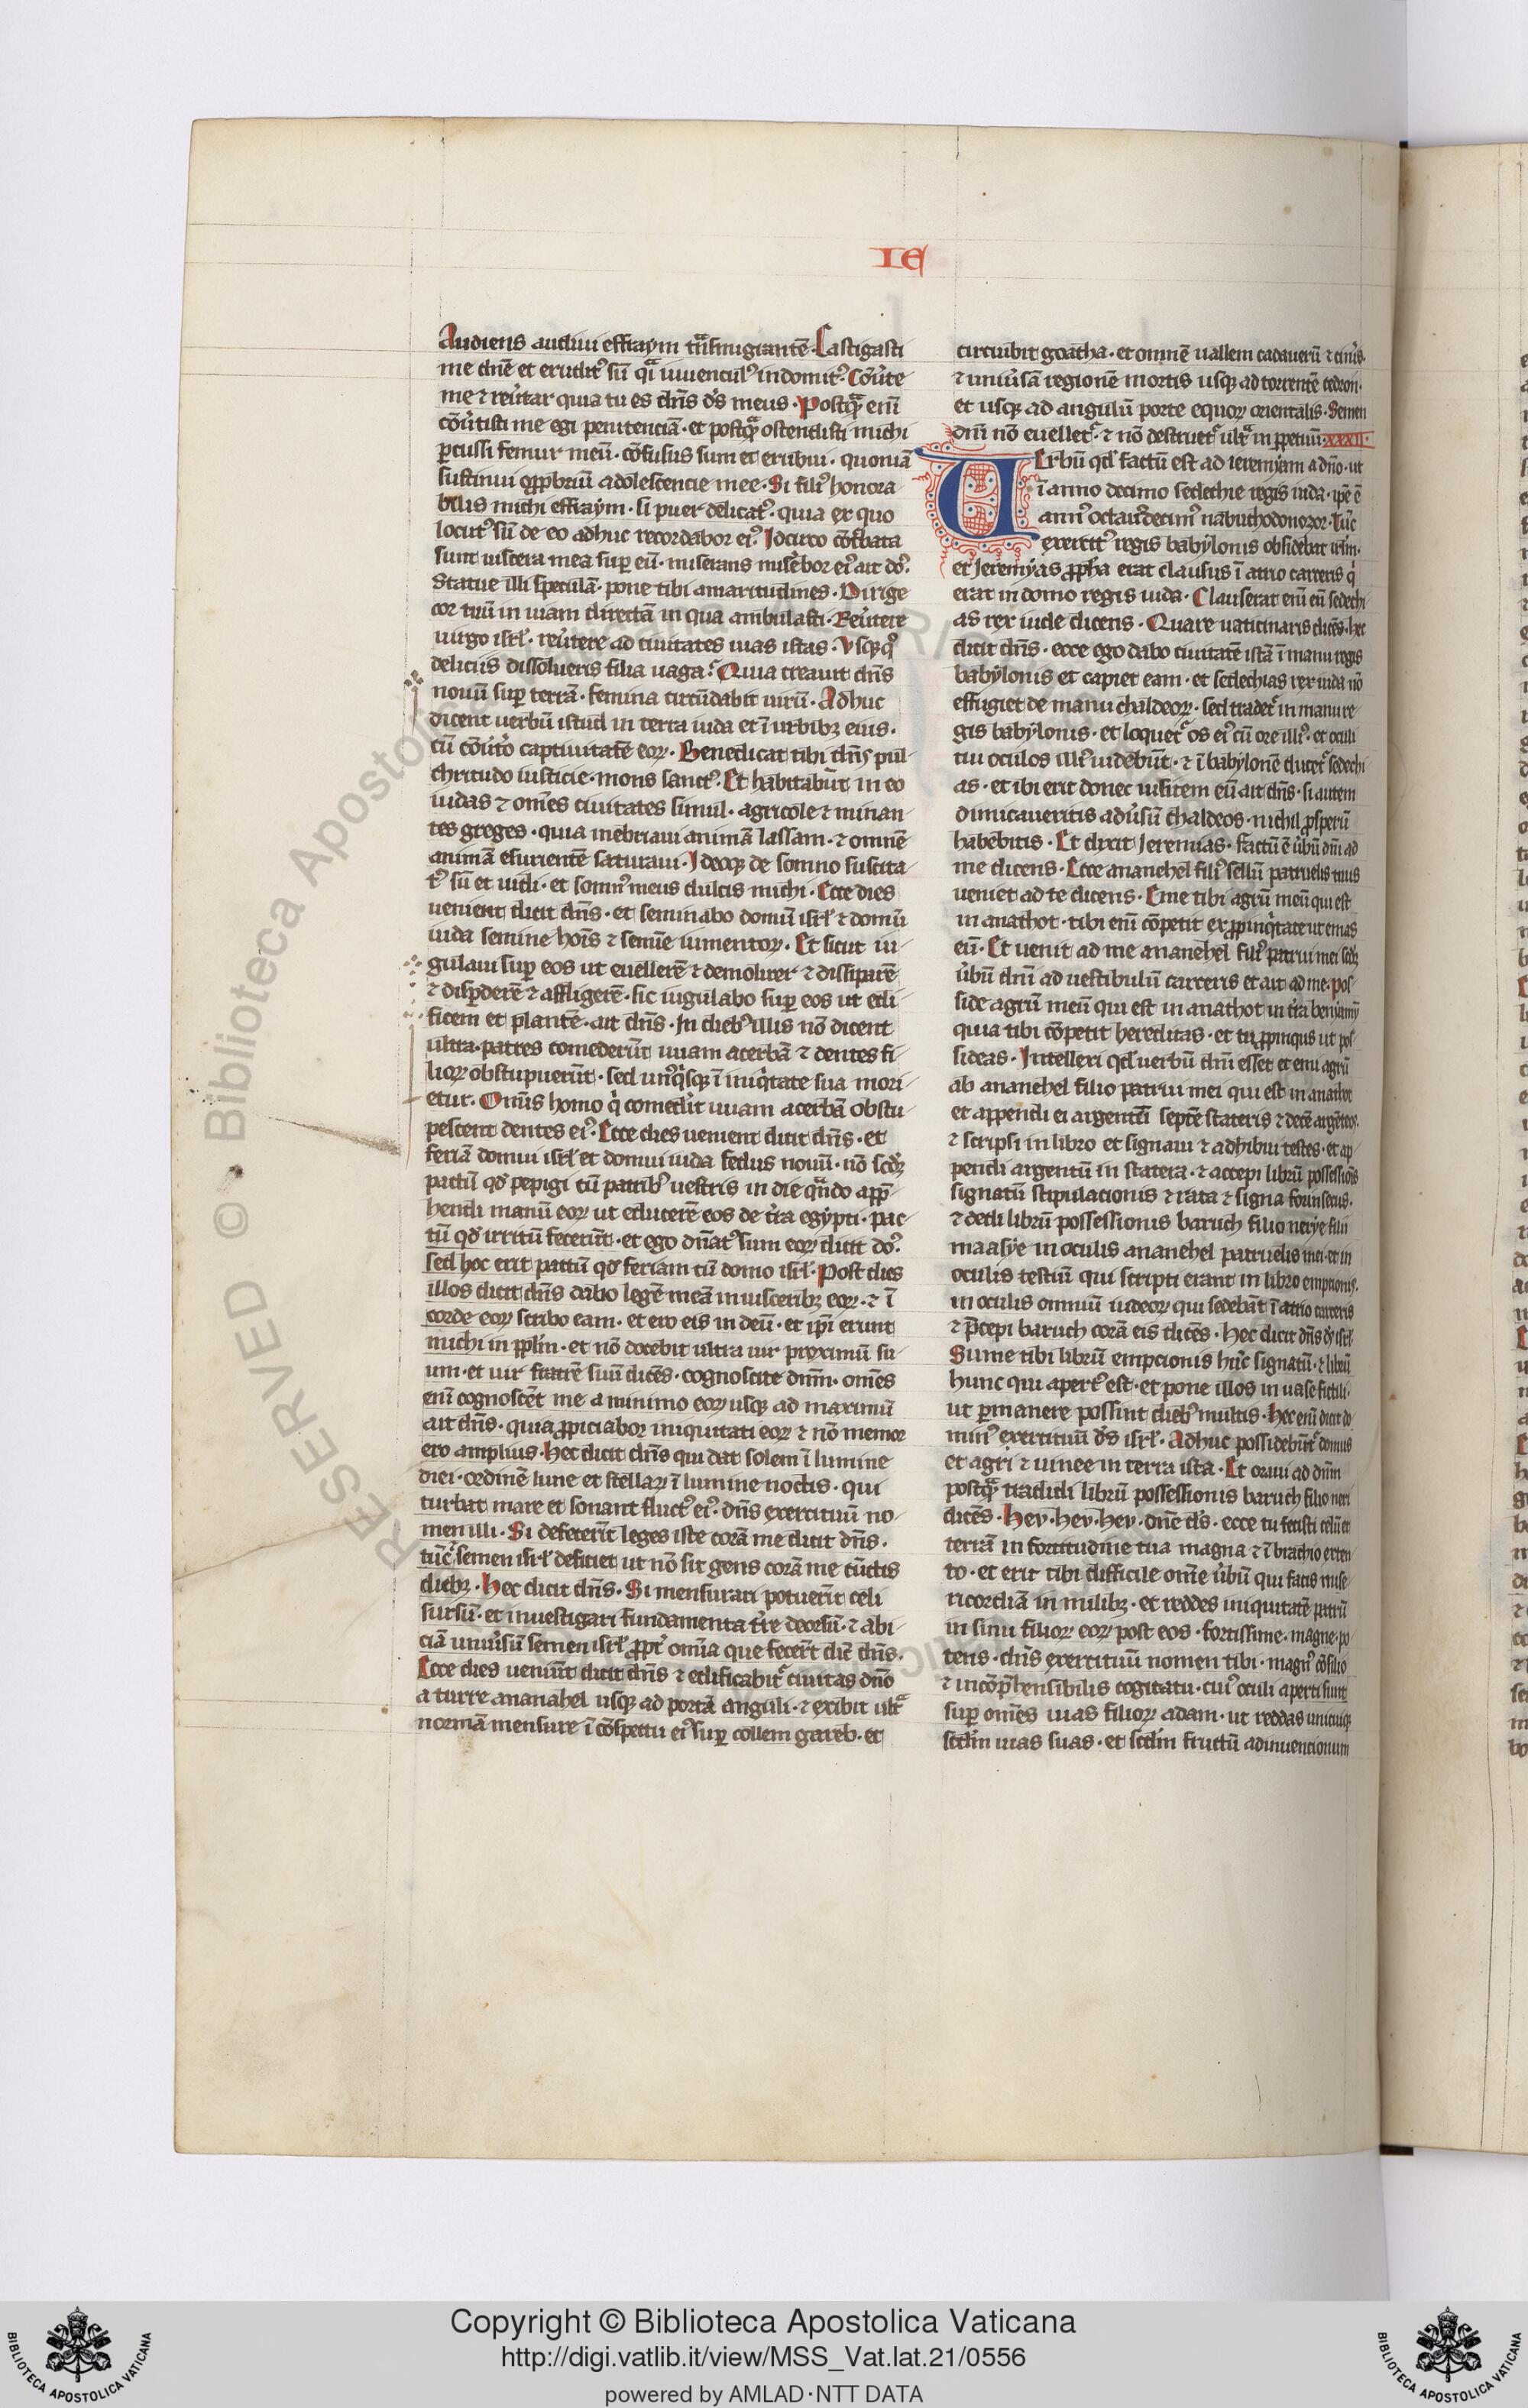 IE
Audiens audiui effraym trãsmigrantẽ. Castigasti
me dñe et erudit᷒ sũ q̃i iuuencul᷒ indomit᷒. Cõũte
me ⁊ reũtar quia tu es dñs d̃s meus. Postq̃ȝ eni᷒
cõũtisti me egi penitenciã. et postq̃ȝ ostendisti michi
ꝑcussi femur meũ. cõfusus sum et erubui. quoniã
sustinui oꝓpbriũ adolescencie mee. Si fili᷒ honora
bilis michi effraym. si puer delicat᷒. quia ex quo
locut᷒ sũ de eo adhuc recordabor ei᷒. Idcirco cõt̃bata
sunt uiscera mea suꝑ eũ. miserans miSẽbor ei᷒ ait dõ᷒.
Statue illi speculã. pone tibi amaritudines. Dirige
cor tuũ in uiam directã in qua ambulasti. Reũtere
uirgo isrl̃. reũtere ad ciuitates tuas istas. Vsq̢q᷒
deliciis dissolueris filia uaga. Quia creauit dñs
nouũ suꝑ terrã. femina circũdabit uirũ. Adhuc
dicent uerbũ istud in terra iuda et ĩ urbibȝ eius.
cũ cõũto captiuitatẽ eoꝝ. Benedicat tibi dñs pul
chritudo iusticie. mons sanct᷒. Et habitabũt in eo
iudas ⁊ om̃es ciuitates simul. agricole ⁊ minan-
tes greges. quia inebriaui animã lassam. ⁊ omnẽ
animã esurientẽ saturaui. Ideoq̢ de somno suscita-
t᷒ sũ et uidi. et somn᷒ meus dulcis michi. Ecce dies
uenient dicit dñs. et seminabo domũ isrl̃ ⁊ domũ
iuda semine hoĩs ⁊ semĩe iumentoꝝ. Et sicut iu-
gulaui suꝑ eos ut euellerẽ ⁊ demolirer ⁊ dissiparẽ
⁊ disꝑderẽ ⁊ affligerẽ. sic iugulabo suꝑ eos ut edi-
ficem et plantẽ. ait dñs. In dieb᷒ illis nõ dicent
ultra. patres comederũt uuam acerbã ⁊ dentes fi-
lioꝝ obstupuerũt. sed un᷒q̇sq̢ ĩ iniq̇tate sua mori-
etur. Om̃is homo q̇ comed̃it uuam acerbã obstu-
pescent dentes ei᷒. Ecce dies uenient dicit dñs. et
feriã domui isrl̃ et domui iuda fedus nouũ. nõ scd̃ȝ
pactũ qd̃ pepigi cũ patrib᷒ uestris in die qñdo app̃-
hendi manũ eoꝝ ut educerẽ eos de t̃ra egypti. pac
tũ qd̃ irritũ fecerũt. et ego dñat᷒ sum eoꝝ dicit dõ᷒.
sed hoc erit pactũ qd̃ feriam cũ domo isrl̃. Post dies
illos dicit dñs dabo legẽ meã in uisceribȝ eoꝝ. ⁊ ĩ
corde eoꝝ scribo eam. et ero eis in deũ. et ip̃i erunt
michi in ppl̃m. et nõ docebit ultra uir proximũ su-
um. et uir fratrẽ suũ dicẽs. cognoscite dñm. om̃es
eni᷒ cognoscẽt me a minimo eoꝝ usq̢ ad maximũ
ait dñs. quia ꝓpiciabor iniquitati eoꝝ ⁊ nõ memor
ero amplius. Hec dicit dñs qui dat solem ĩ lumine
diei. ordinẽ lune et stellaꝝ ĩ lumine noctis. qui
turbat mare et sonant fluct᷒ ei᷒. dñs exercituũ no-
men illi. Si defecerĩt leges iste corã me dicit dñs.
tũc semen isrl̃ deficiet ut nõ sit gens corã me cũctis
diebȝ. Hec dicit dñs. Si mensurari potuerĩt celi
sursũ. et inuestigari fundamenta t̃re deorsũ. ⁊ abi-
ciã uniũsũ semen isrl̃ ꝓpt̃ om̃ia que fecer̃t dic̃ dñs.
Ecce dies ueniũt dicit dñs ⁊ edificabit᷑ ciuitas dño
a turre ananahel usq̢ ad portã anguli. ⁊ exibit ult᷑
normã mensure ĩ cõspectu ei᷒ suꝑ collem gareb. et
circuibit goatha. et omnẽ uallem cadauerũ ⁊ cin̾is.
⁊ uniũsã regionẽ mortis usq̢ ad torrentẽ cedron.
et usq̢ ad angulũ porte equoꝝ orientalis. Semen
dñi nõ euellet᷑. ⁊ nõ destruet᷑ ult᷑ in ꝑpetuũ. XXXII.
Uerbũ qd̃ factũ est ad ieremyam a dño. ut
ĩ anno decimo sedechie regis iuda. ip̃e ẽ
ann᷒ octau᷒decim᷒ nabuchodonozor. Tũc
exercit᷒ regis babylonis obsidebat irl̃m.
et Jeremyas ꝓph̃a erat clausus ĩ atrio carceris q̇
erat in domo regis iuda. Clauserat eni᷒ eũ sedechi-
as rex iude dicens. Quare uaticinaris dicẽs. hec
dicit dñs. ecce ego dabo ciuitatẽ istã ĩ manu regis
babylonis et capiet eam. et sedechias rex iuda nõ
effugiet de manu chaldeoꝝ. sed tradet᷑ in manu re-
gis babylonis. et loquet᷑ os ei᷒ cũ ore illi᷒. et oculi
cui oculos illi᷒ uidebũt. ⁊ ĩ babylonẽ ducet᷑ sedechi-
as. et ibi erit donec uisitem eũ ait dñs. si autem
dimicaueritis adũsũ chaldeos. nichil ꝓsperũ
habebitis. Et dixit Jeremias. Factũ ẽ ũbũ dñi ad
me dicens. Ecce ananehel fili᷒ sellũ patruelis tuus
ueniet ad te dicens. Eme tibi agrũ meũ qui est
in anathot. tibi eni᷒ cõpetit ex ꝓpinq̇tate ut emas
eũ. Et uenit ad me ananehel fili᷒ patrui mei scd̃ȝ
ũbũ dñi ad uestibulũ carceris et ait ad me. pos-
side agrũ meũ qui est in anathot in t̃ra benyamỹ
quia tibi cõpetit hereditas. et tu ꝓpinqus ut pos-
sideas. Intellexi qd̃ uerbũ dñi esset et emi agrũ
ab ananehel filio patrui mei qui est in anathot
et appendi ei argentũ septẽ stateris ⁊ decẽ argẽteos.
⁊ scripsi in libro et signaui ⁊ adhibui testes. et ap-
pendi argentũ in statera. ⁊ accepi librũ possessiõis
signatũ stipulacionis ⁊ rata ⁊ signa forinsecus.
⁊ dedi librũ possessionis baruch filio nerye filii
maasye in oculis ananehel patruelis mei. et in
oculis testiũ qui scripti erant in libro empcionis.
in oculis omniũ iudeoꝝ qui sedebãt ĩ atrio carceris
⁊ p̃cepi baruch corã eis dicẽs. Hec dicit dñs d̃s isrl̃
Sume tibi librũ empcionis hũc signatũ. ⁊ librũ
hunc qui apert᷒ est. et pone illos in uase fictili.
ut ꝑmanere possint dieb᷒ multis. Hec eni᷒ dicit do
min᷒ exercituũ d̃s isrl̃. Adhuc possidebũt᷑ domus
et agri ⁊ uinee in terra ista. Et oraui ad dñm
postq̃ȝ tradidi librũ possessionis baruch filio neri
dicẽs. Hev. hev. hev. dñe d̃s. ecce tu fecisti celũ et
terrã in fortitudine tua magna ⁊ ĩ brachio exten-
to. et erit tibi difficile om̃e ũbũ qui facis mise-
ricordiã in milibȝ. et reddes iniquitatẽ patrũ
in sinu filioꝝ eoꝝ post eos. fortissime. magne. po-
tens. dñs exercituũ nomen tibi. magn᷒ cõsilio
⁊ incõp̃hensibilis cogitatu. cui᷒ oculi aperti sunt
suꝑ om̃es uias filioꝝ adam. ut reddas unicuiq̢
scd̃m uias suas. et scd̃m fructũ adinuencionum
Copyright © Biblioteca Apostolica Vaticana
http://digi.vatlib.it/view/MSS_Vat.lat.21/0556
powered by AMLAD·NTT DATA
BIBLIOTECA APOSTOLICA VATICANA
BIBLIOTECA APOSTOLICA VATICANA